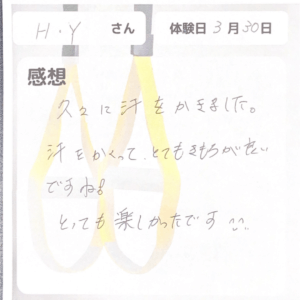 H・Y さん 体験日 3月30日
感想
久々に汗をかきました。
汗をかくって、とてもきもちが良い
ですね!
とっても楽しかったです ^^